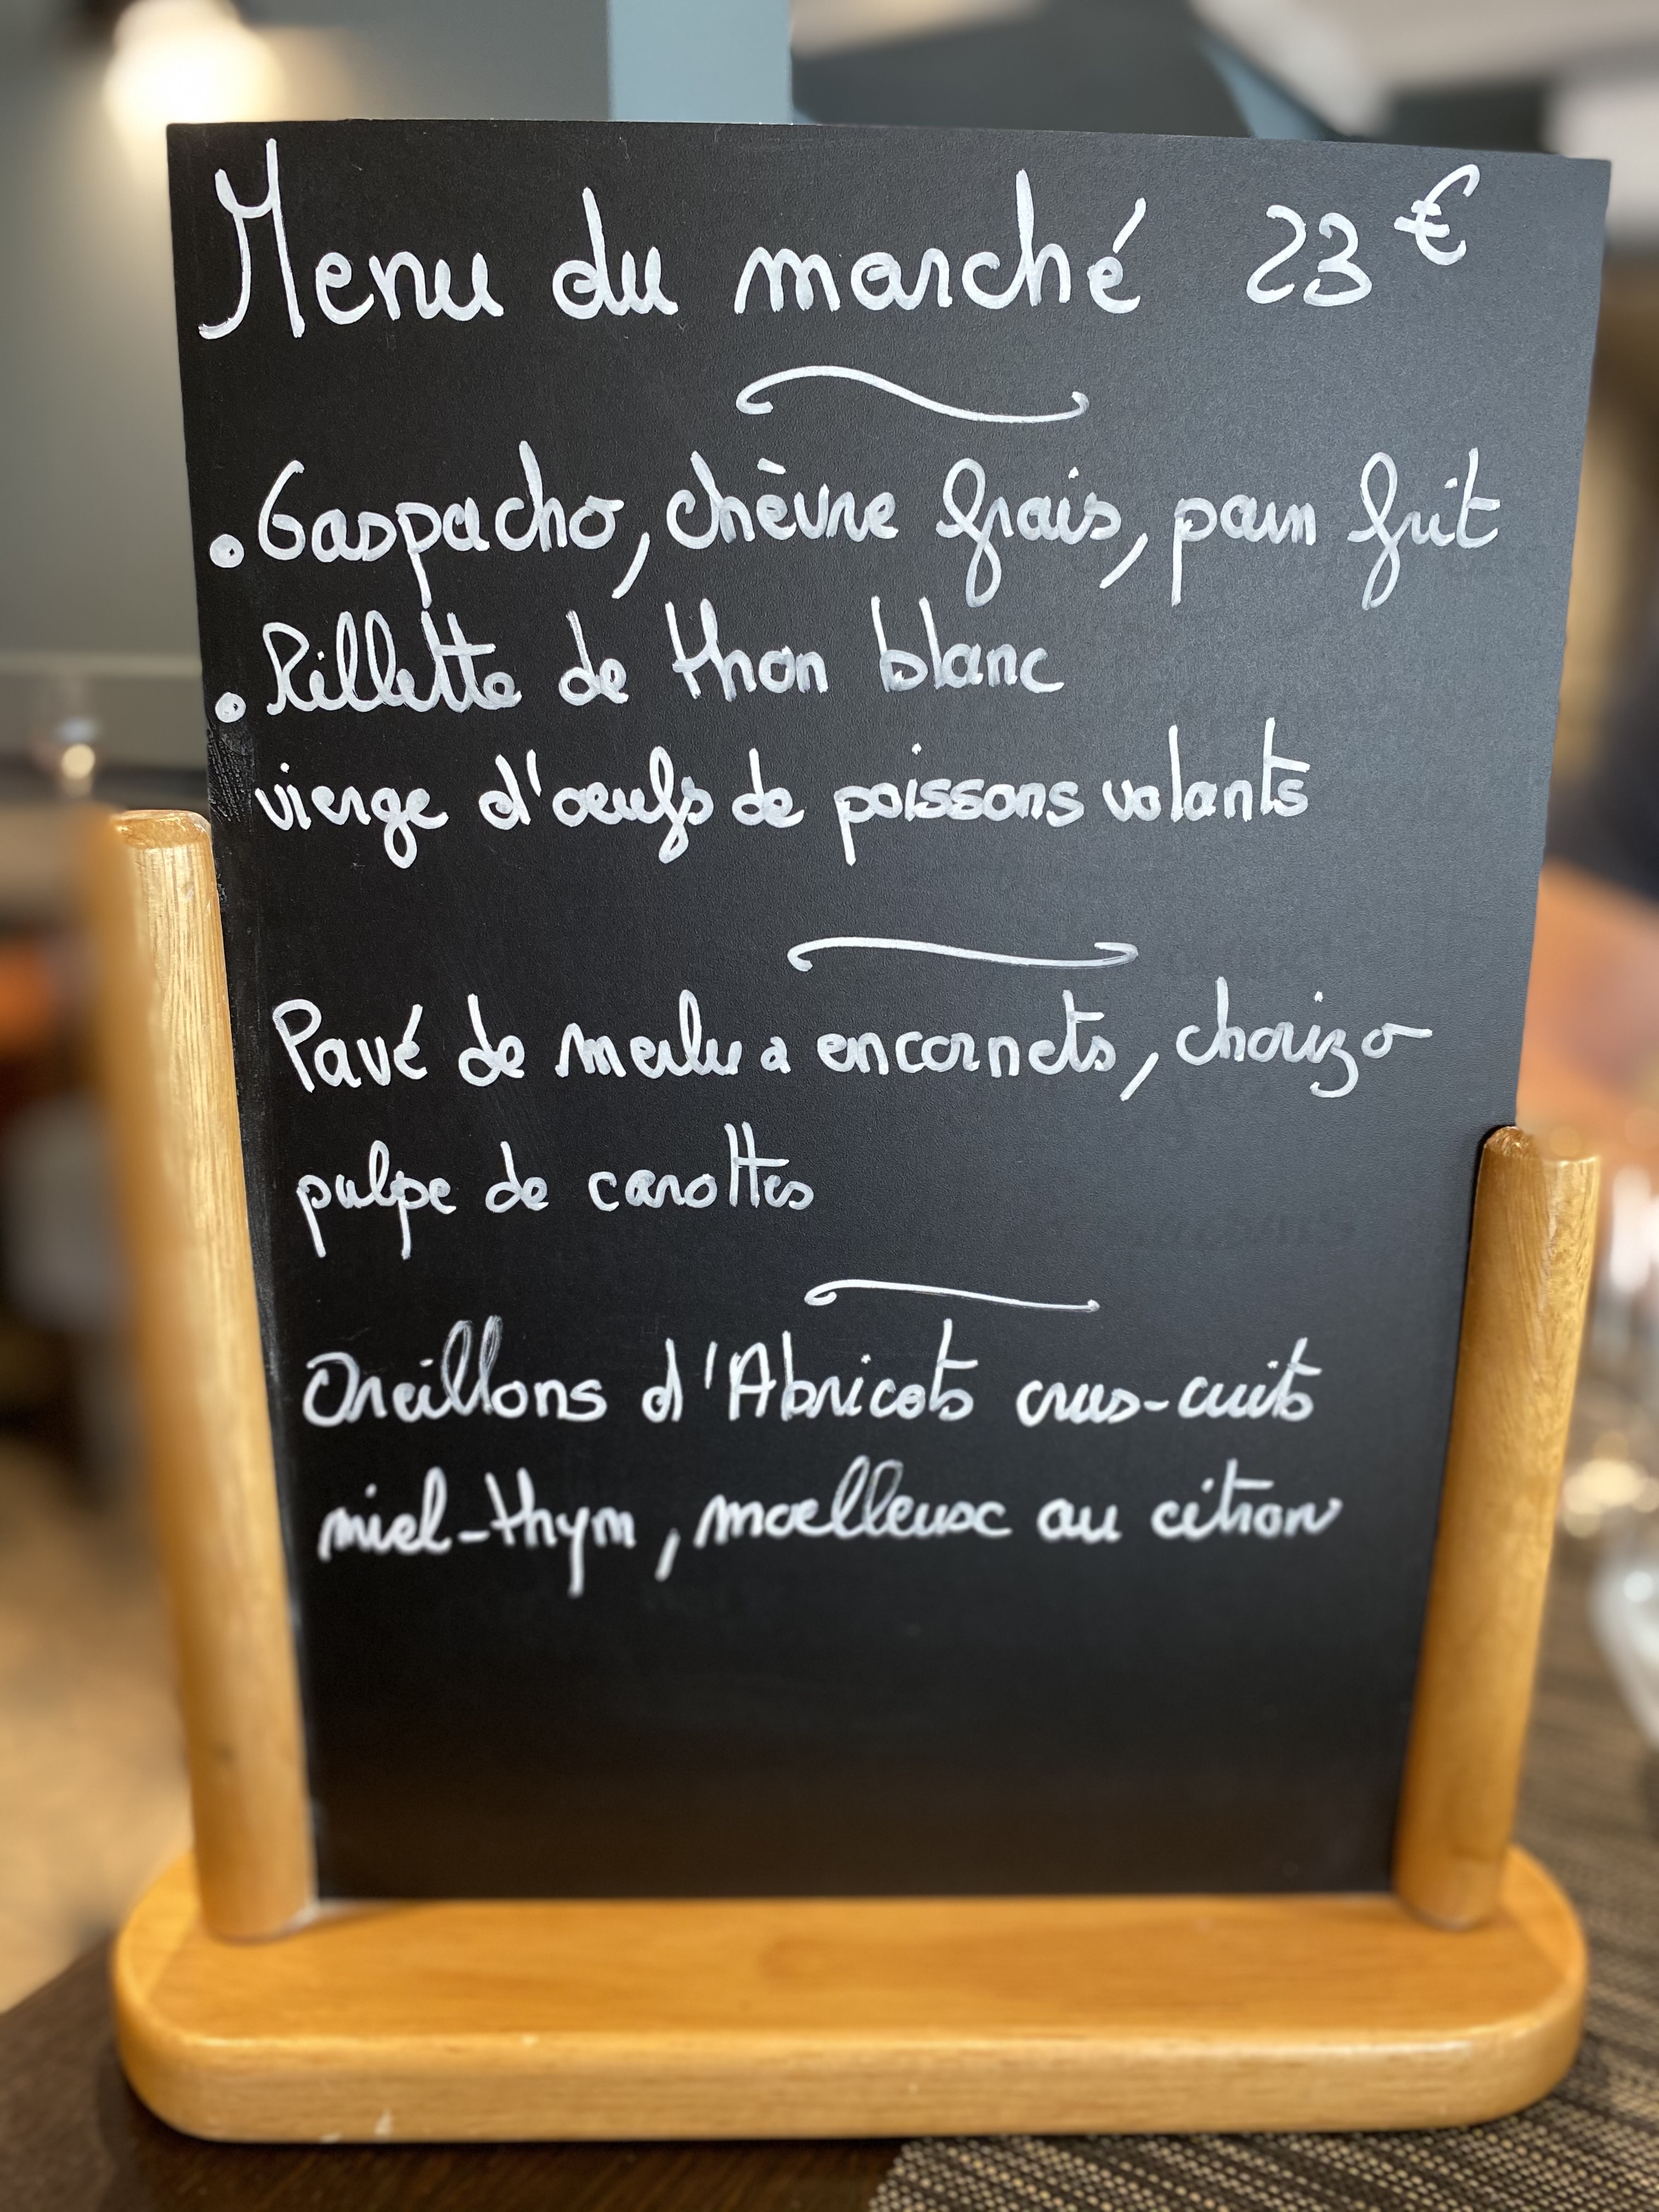 Menu du marché 23 €
• Gaspacho, chèvre frais, pain frit
• Rillette de thon blanc
vierge d'oeufs de poissons volants
Pavé de merlu a encornets, chorizo
pulpe de carottes
Oreillons d'Abricots crus-cuits
miel-thym, moelleux au citron